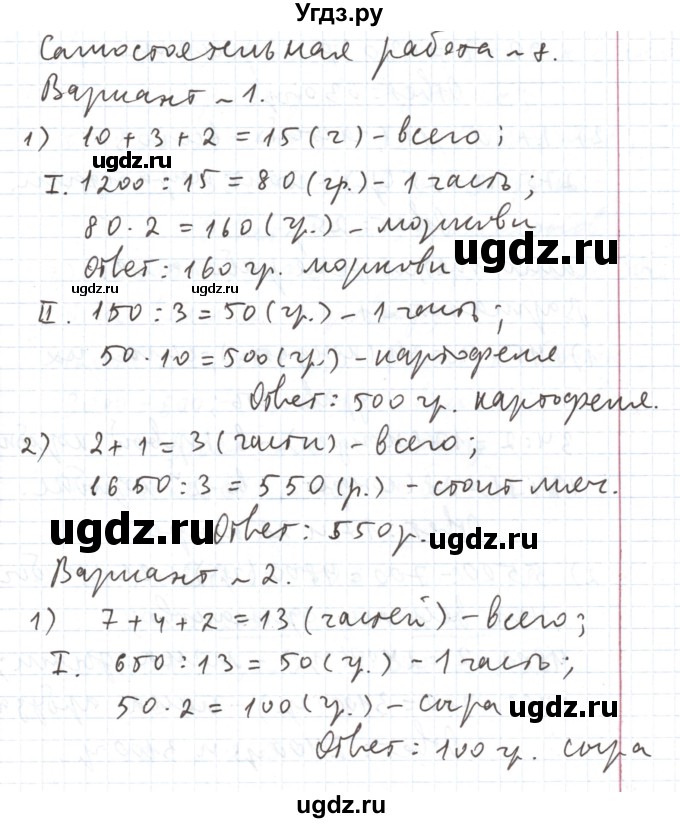 Угдз.ру
Самостоятельная работа ~ 8.
Вариант ~ 1.
1) 10 + 3 + 2 = 15 (ч) - всего;
ugdz.ru
I. 1200 : 15 = 80 (гр.) - 1 часть;
80 · 2 = 160 (гр.) - моркови
ugdz.ru
Ответ: 160 гр. моркови
ugdz.ru ugdz.ru
II. 150 : 3 = 50 (гр.) - 1 часть;
50 · 10 = 500 (гр.) - картофеля
Ответ: 500 гр. картофеля.
2) 2 + 1 = 3 (части) - всего;
1650 : 3 = 550 (р.) - стоит мяч.
ugdz.ru
Ответ: 550 р.
ugdz.ru
Вариант ~ 2.
1) 7 + 4 + 2 = 13 (частей) - всего;
I. 650 : 13 = 50 (гр.) - 1 часть;
50 · 2 = 100 (гр.) - сыра
ugdz.ru
Ответ: 100 гр. сыра
ugdz.ru
ugdz.ru